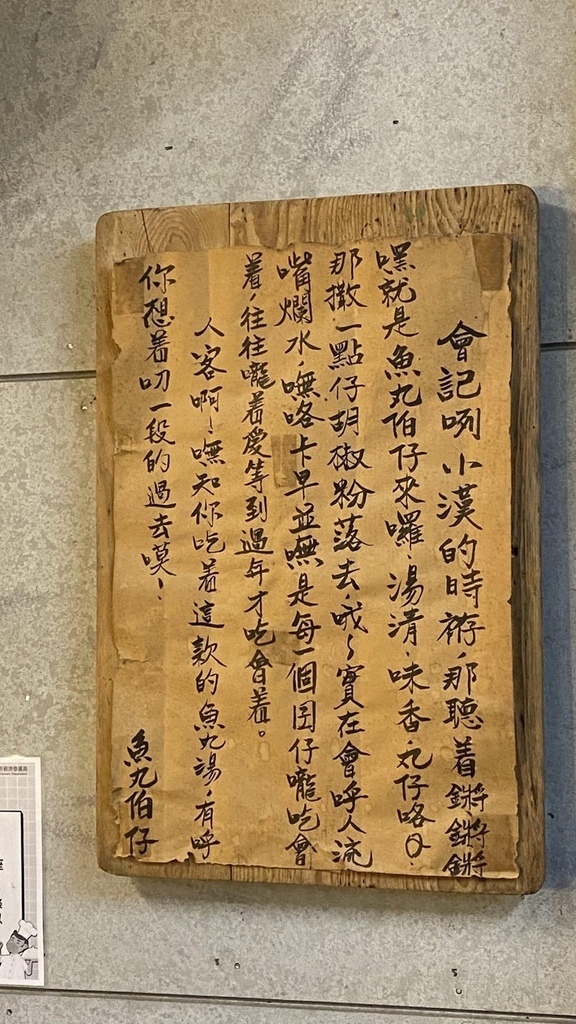 會記咧小漢的時袸，那聽着鏘、鏘、鏘
嘿就是魚丸伯仔來囉、湯清、味香、丸仔咯Q
那撒一點仔胡椒粉落去，哦～實在會呼人流
嘴爛水，嘸咯卡早並嘸是每一個囝仔嚨吃會
着，往往嚨着愛等到過年才吃會着。
人客啊！嘸知你吃着這款的魚丸湯，有呼
你想着叨一段的過去嘆！
魚丸伯仔